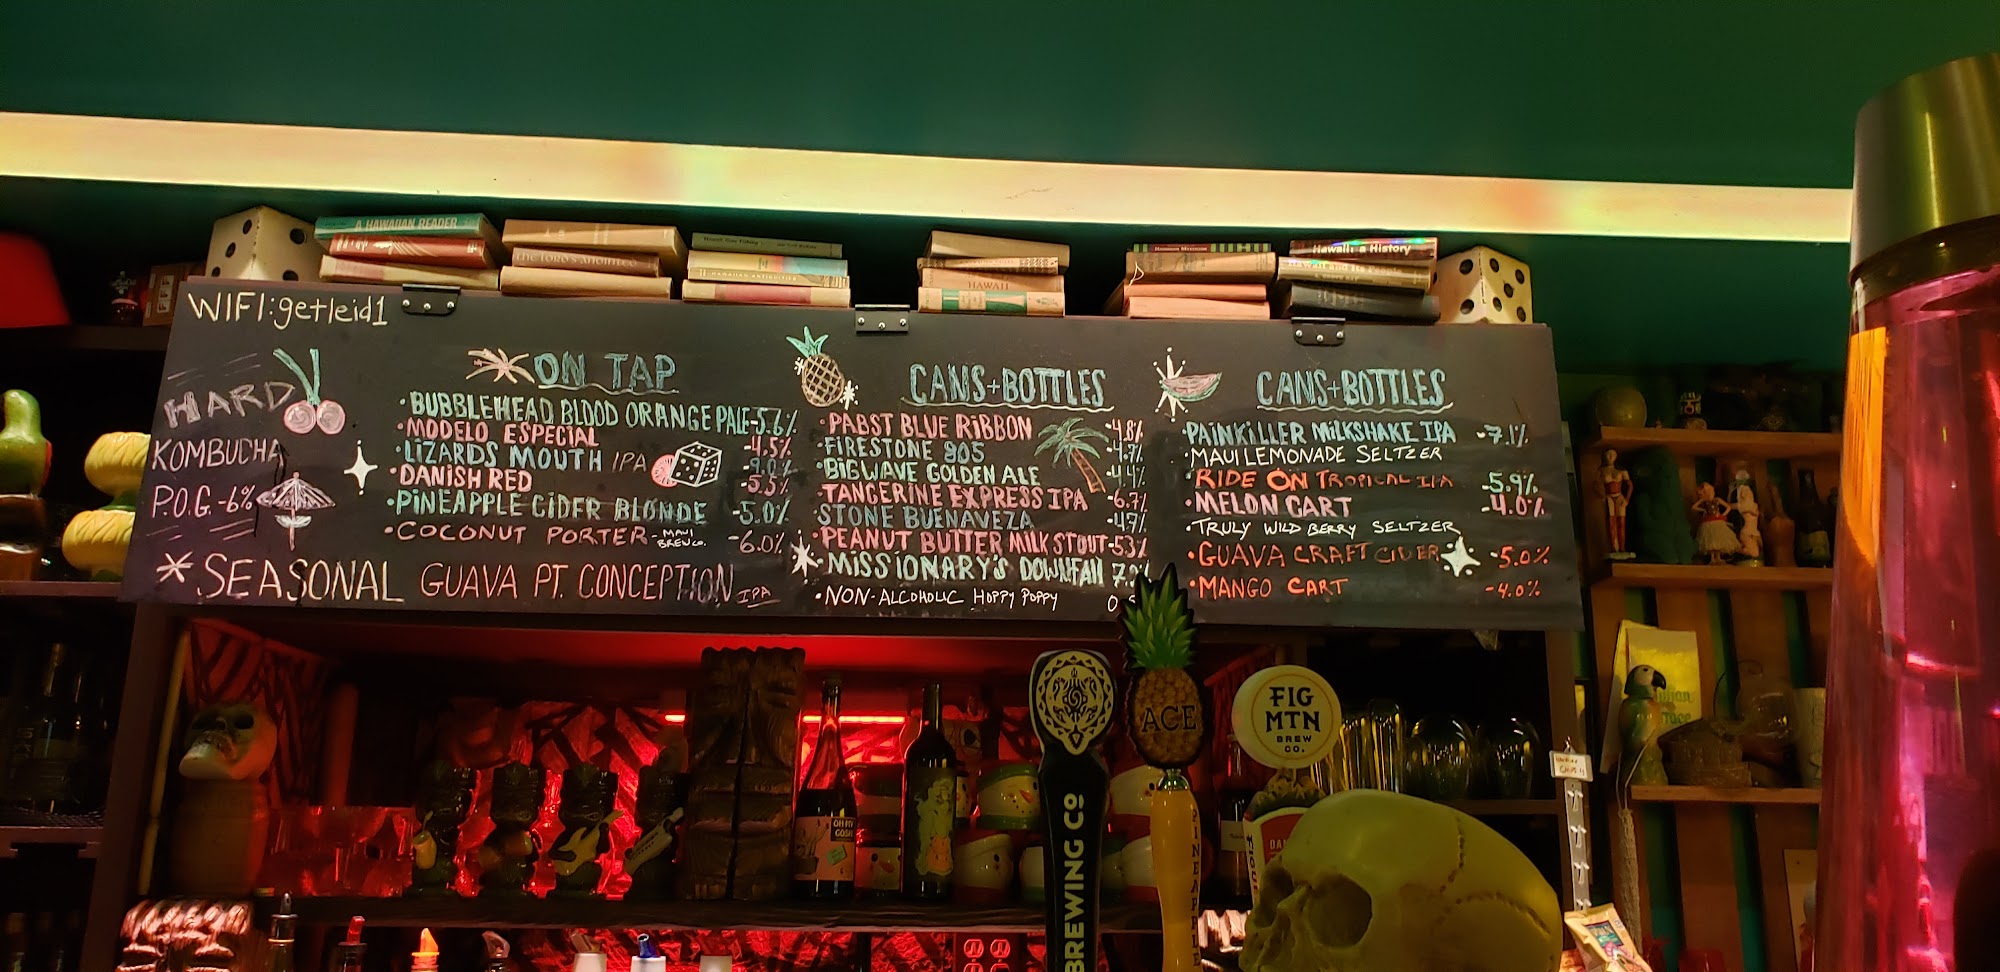 A HAWAIIAN READER
HAWAII
Hawaii: a History
WIFI:getleid1
HARD
KOMBUCHA
P.O.G.-6%
ON TAP
•BUBBLEHEAD BLOOD ORANGE PALE-5.6%
•MODELO ESPECIAL -4.5%
•LIZARDS MOUTH IPA -9.0%
•DANISH RED -5.5%
•PINEAPPLE CIDER BLONDE -5.0%
•COCONUT PORTER-MAUI BREW CO. -6.0%
*SEASONAL GUAVA PT. CONCEPTION IPA
CANS+BOTTLES
•PABST BLUE RIBBON -4.8%
•FIRESTONE 805 -4.7%
•BIG WAVE GOLDEN ALE -4.4%
•TANGERINE EXPRESS IPA -6.7%
•STONE BUENAVEZA -4.7%
•PEANUT BUTTER MILK STOUT-5.3%
•MISSIONARY'S DOWNFALL
•NON-ALCOHOLIC HOPPY POPPY
CANS+BOTTLES
•PAINKILLER MILKSHAKE IPA -7.1%
•MAUI LEMONADE SELTZER
•RIDE ON TROPICAL IPA -5.9%
•MELON CART -4.0%
•TRULY WILD BERRY SELTZER
•GUAVA CRAFT CIDER -5.0%
•MANGO CART -4.0%
BREWING CO
ACE
PINEAPPLE
FIG
MTN
BREW
CO.
OH MY
GOSH